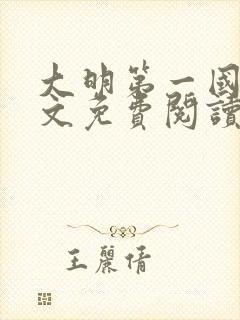 大明第一國
文免費閱讀
王麗倩